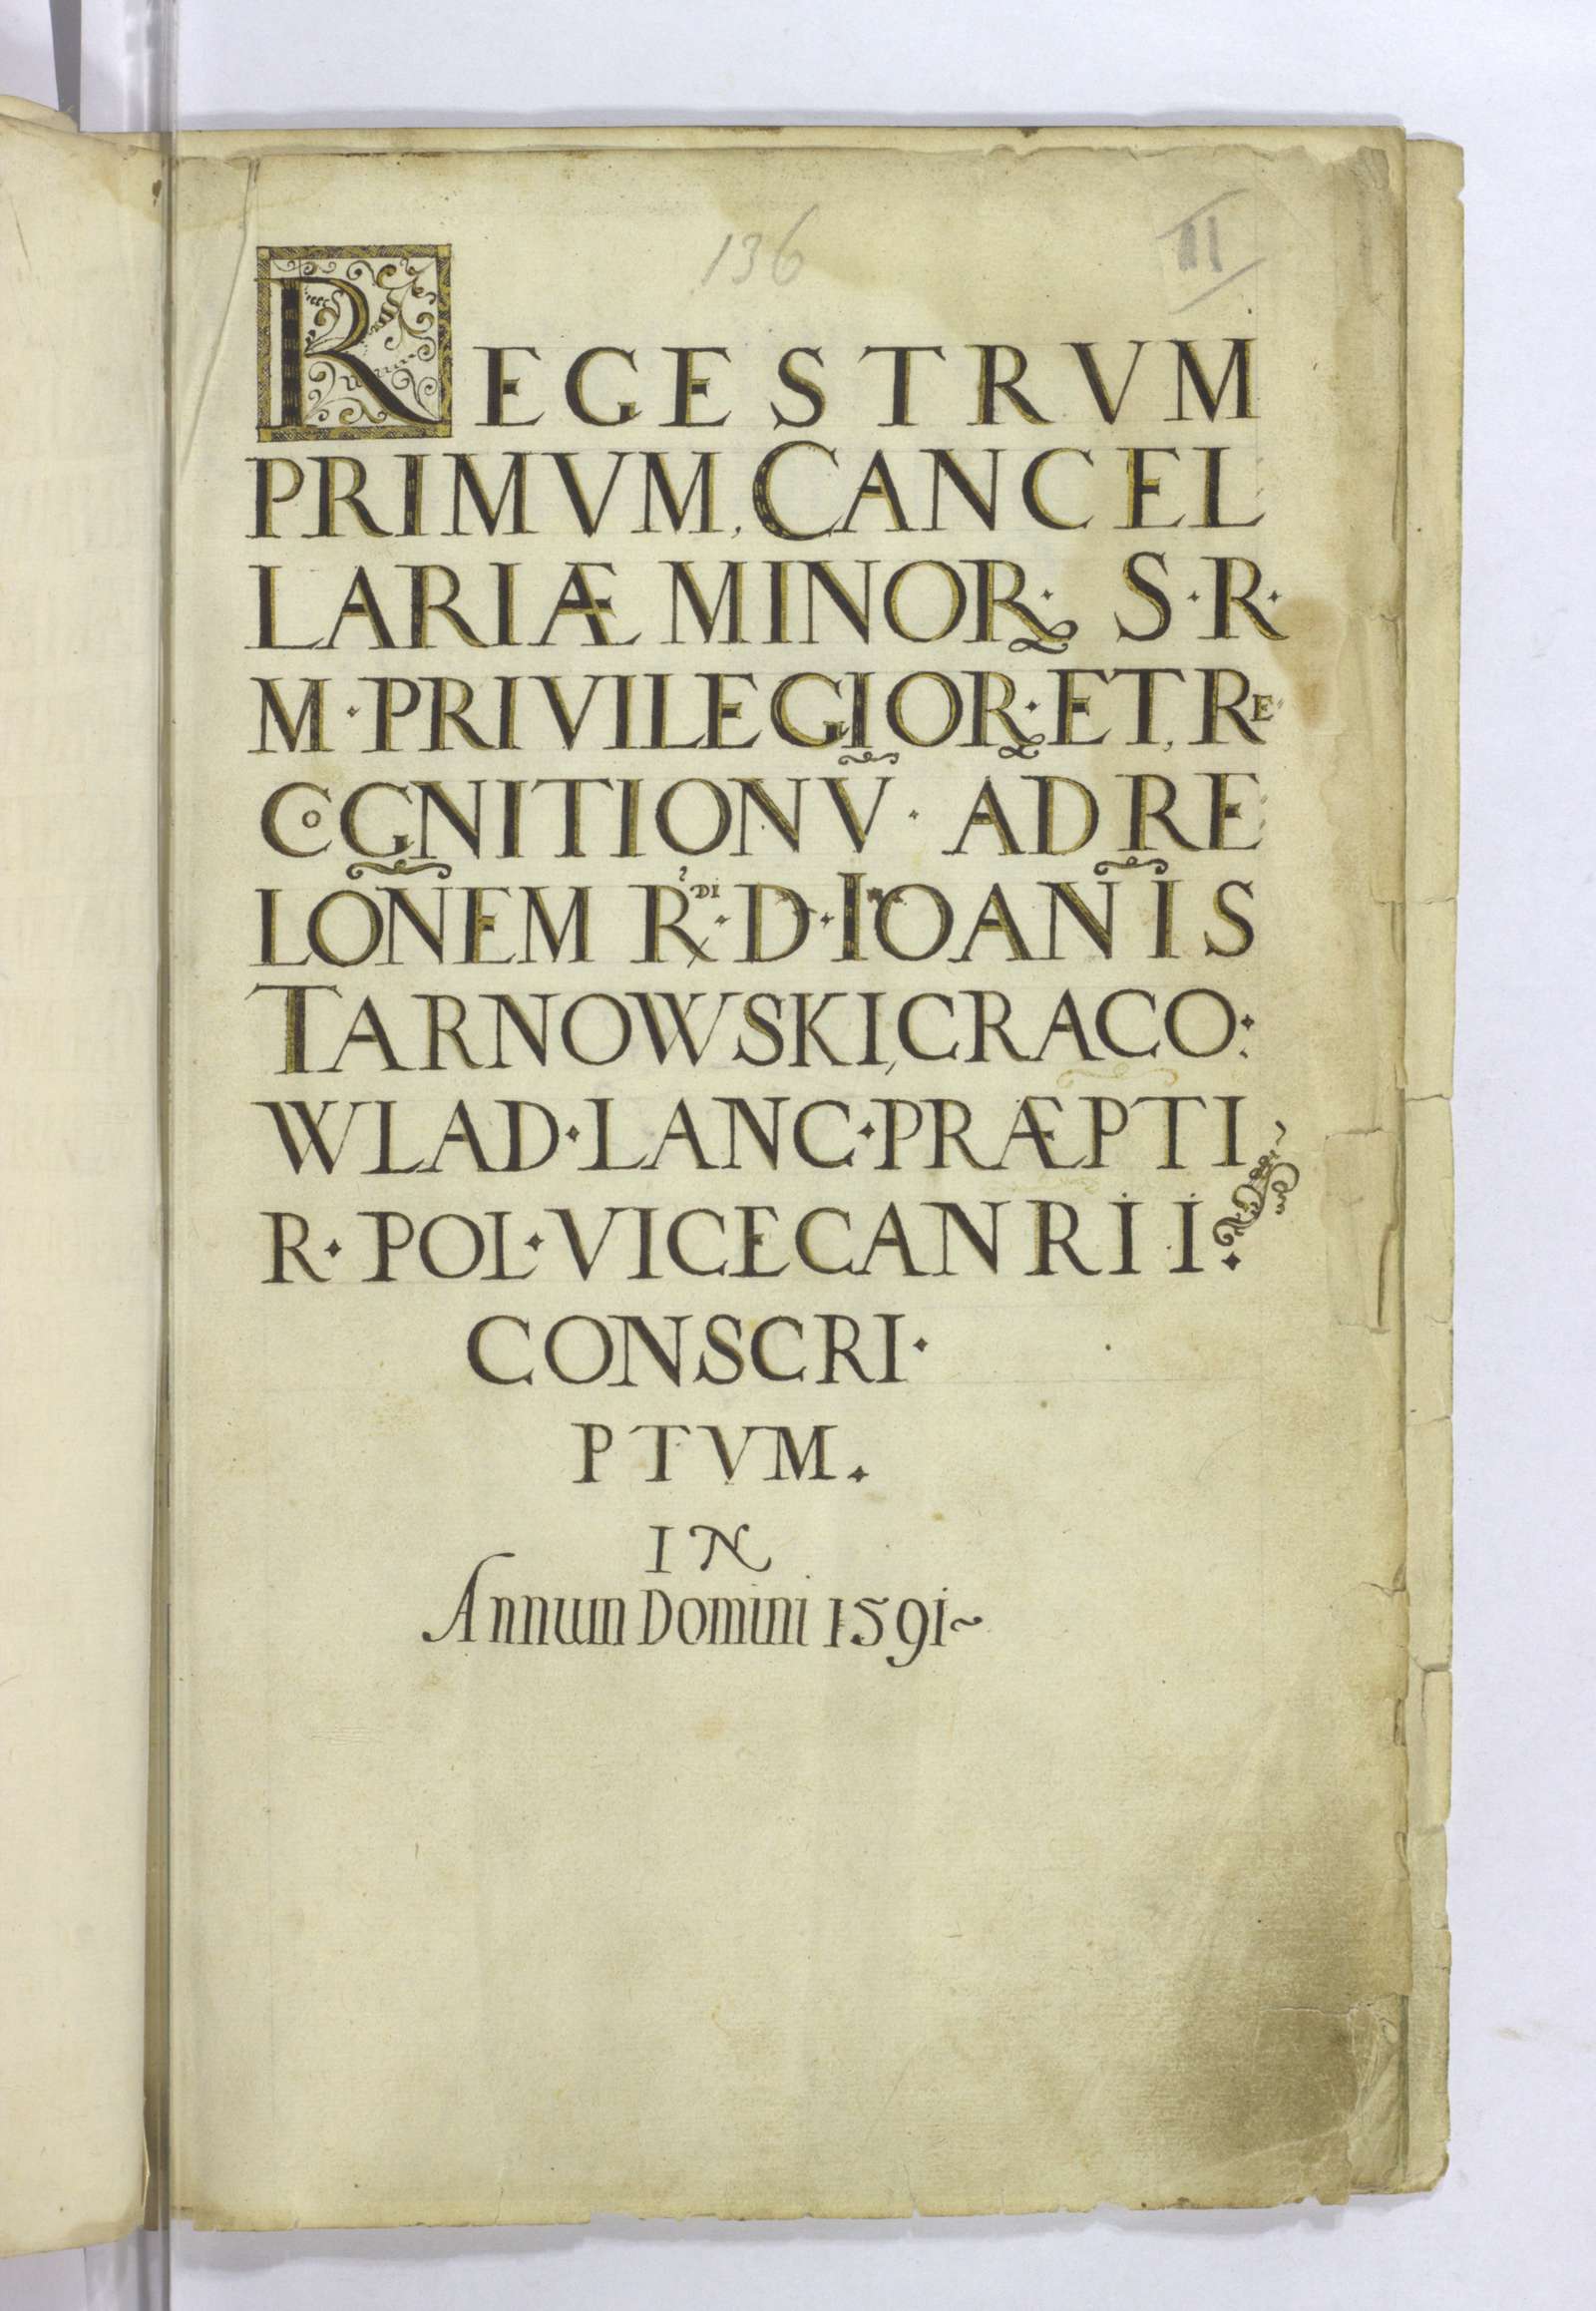 136
II
REGESTRVM
PRIMVM, CANCEL
LARIÆ MINOR· S·R·
M·PRIVILEGIOR·ET, RE
COGNITIONV̄· AD RE
LŌNEM R·DI·D·IOAÑIS
TARNOWSKI, CRACO:
WLAD·LANC·PRÆPTI
R·POL·VICECANRII·
CONSCRI·
PTVM.
IN
Annum Domini 1591~